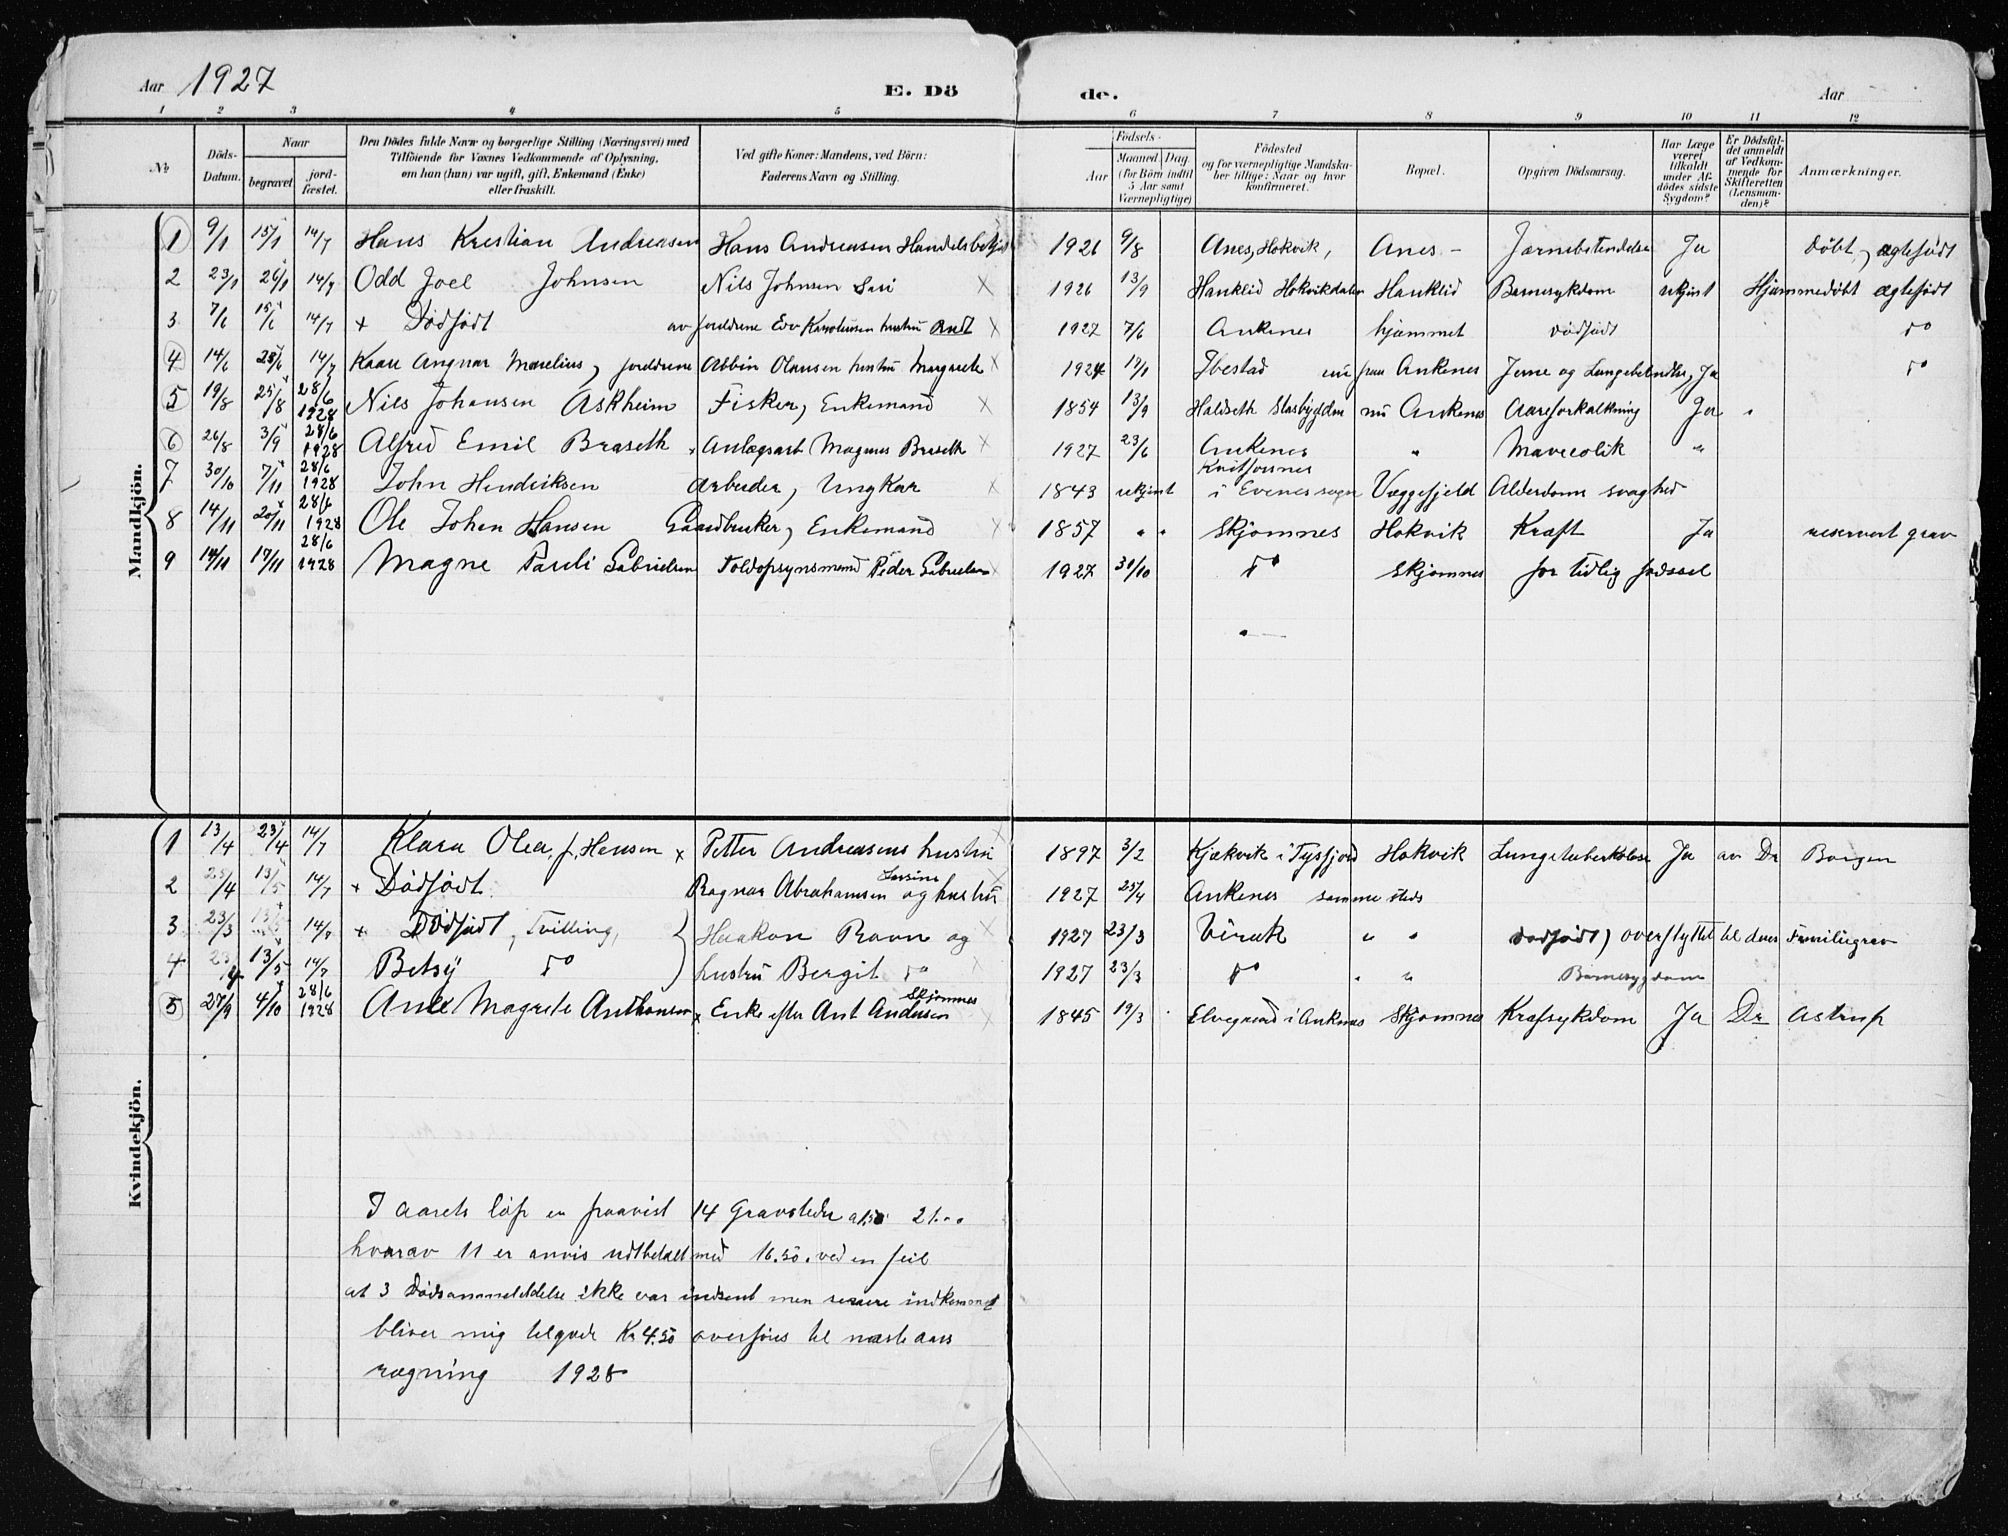 Aar 1927 E. Dö de. Aar
1 2 3 4 5 6 7 8 9 10 11 12
No
Döds-Datum.
Naar
begravet.
jord-fæstet.
Den Dödes fulde Navn og borgerlige Stilling (Næringsvei) med
Tilföiende for Voxnes Vedkommende af Oplysning,
om han (hun) var ugift, gift, Enkemand (Enke)
eller fraskilt.
Ved gifte Koner: Mandens, ved Börn:
Faderens Navn og Stilling.
Födsels-
Aar
Maaned. Dag.
(for Börn indtil
5 Aar samt
Værnepligtige)
Födested
og for værnepligtige Mandska-
ber tillige: Naar og hvor
konfirmeret.
Bopæl.
Opgiven Dödsaarsag.
Har Læge
været
tilkaldt
under Af-
dödes sidste
Sygdom?
Er Dödsfal-
det anmeldt
af Vedkom-
mende for
Skifteretten
(Lensman-
den)?
Anmærkninger.
Mandkjön.
1 9/1 15/1 14/7 Hans Krestian Andreasen Hans Andreasen Handelsbetjent 1926 9/8 Anes, Hokvik, Anes - Jærnebetendelse Ja Döbt, ægtefødt
2 23/1 26/1 14/7 Odd Joel Johnsen Nils Johnsen X 1926 13/9 Hanklid Hokvikdalen Hanklid Barnesykdom ukjent Hjemmedöbt ægtefødt
3 7/6 15/6 14/7 + Dödfødt av foreldrene Edv Karolinsen hustru X 1927 7/6 Ankenes hjemmet Dödfødt Do
4 14/6 28/6 14/7 Kaare Angnar Marelius, foreldrene Albin Olausen hustru Margrete X 1924 19/1 Ibestad nu paa Ankenes Jerne og Lungebetendelse, Ja Do
5 19/8 25/8 28/6 1928 Nils Johansen Askheim Fisker, Enkemand X 1854 13/9 Haldseth nu Ankenes Aareforkalkning Ja "
6 26/8 3/9 28/6 1928 Alfred Emil Braseth Anlægsarb Magnus Braseth X 1927 23/6 Ankenes " Mavecolik "
7 30/10 7/11 28/6 1928 John Hendriksen Arbeider, Ungkar X 1843 ukjent Kvitforsnes i Evenes sogn Væggefjeld Alderdoms svaghed
8 14/11 20/11 28/6 1928 Ole Johan Hansen Gaardbruker, Enkemand X 1857 " " Skjomnes Hokvik Kræft Ja reservert grav
9 14/11 17/11 28/6 1928 Magne Pauli Gabrielsen Toldopsynsmand Peder Gabrielsen 1927 31/10 Do Skjomnes for tidlig fødssel
Kvindekjön.
1 13/4 23/4 14/7 Klara Olea, f. Hansen x Petter Andreasens hustru 1897 3/2 Kjækvik i Tysfjord Hokvik Lungetuberkolose Ja av Dr Borgen
2 25/4 13/5 14/7 + Dödfødt Ragnar Abrahamsen og hustru 1927 25/4 Ankenes samme steds
3 23/3 14/7 + Dödfødt, Tvilling, Haakon Ravn og 1927 23/3 Virak " " Dødfødt, overflyttet til deres Familiegrav
4 13/5 14/7 Betsy Do hustru Bergit Do 1927 23/3 Do " " Barnesygdom
5 27/9 4/10 28/6 1928 Ane Magrete Anthonsen x Enke efter Ant Andersen Skjomnes 1845 19/3 Elvegaard i Ankenes Skjomnes Kræfsykdom Ja Dr Astrup
I aarets løp er paavist 14 Gravsteder a 1.50 21..
hvorav 11 er anvis udtbetalt med 16.50. ved en feil
at 3 Dødsanmeldelse ikke var indsent men senere indkommet
bliver mig tilgode Kr 4.50 overføres til næste aars
rægning 1928